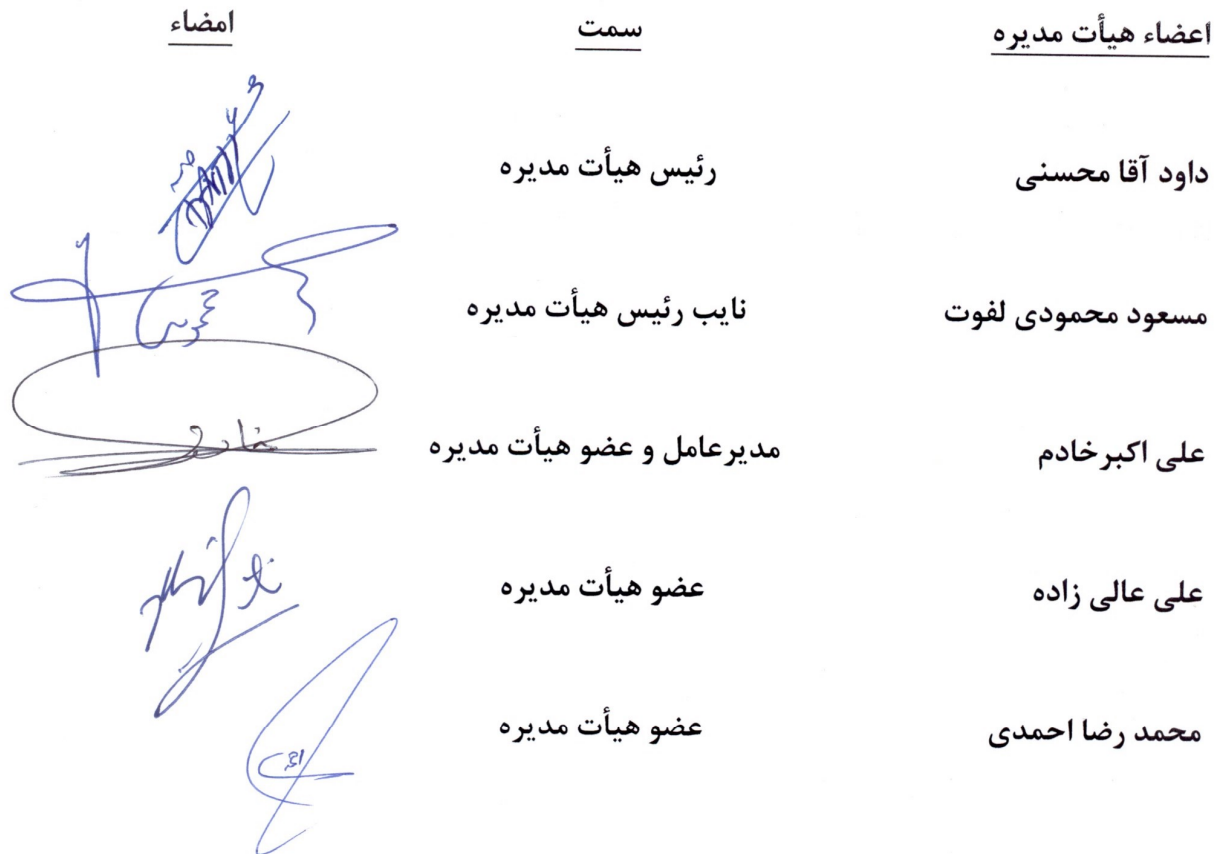 اعضاء هیأت مدیره سمت امضاء
داود آقا محسنی رئیس هیأت مدیره
مسعود محمودی لفوت نایب رئیس هیأت مدیره
علی اکبرخادم مدیرعامل و عضو هیأت مدیره
علی عالی زاده عضو هیأت مدیره
محمد رضا احمدی عضو هیأت مدیره